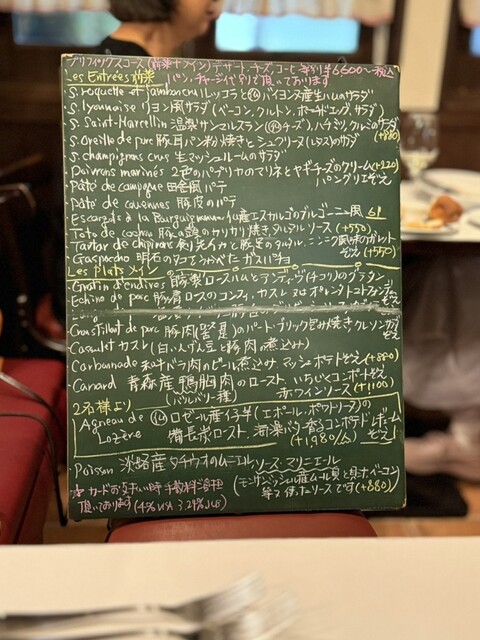 プリフィックスコース(前菜+メイン)デザート、チーズ、コーヒー等別 ¥6600〜税込
Les Entrées 前菜 パン、チャージ代 別で頂いております
・S. roquette et jambon cru ルッコラと仏バイヨンヌ産生ハムサラダ
・S. lyonnaise リヨン風サラダ (ベーコン、クルトン、ポーチドエッグ、サラダ)
・S. Saint-Marcellin 温製サンマルスラン(仏チーズ)、ハチミツ、クルミのサラダ (+880)
・S. oreille de porc 豚耳パン粉焼きとシュクリーヌ(レタス)のサラダ
・S. champignons crus 生マッシュルームのサラダ
・Poivrons marinés 2色のパプリカのマリネとヤギチーズのクリーム(+220) パングリエぞえ
・Pate de campagne 田舎風パテ
・Pate de couennes 豚皮のパテ
・Escargots à la Bourguignonne 仏産エスカルゴのブルゴーニュ風 6P
・Tete de cochon 豚の頭のカリカリ焼き、タルタルソース (+550)
・Tartar de chipirons 剣先イカと豚足のタルタル、ニンニク風味のガレットぞえ (+550)
・Gaspacho 明石のタコとうらべた ガスパチョ
Les Plats メイン
・Gratin d'endives 豚製ロースハムとアンディーヴ(チコリ)のグラタン
・Echine de porc 豚肩ロースのコンフィ、カスレ 又は ポレンタ トマトフォンデュぞえ
・Croustillat de porc 豚肉のパートブリック包み焼き クレソンサラダぞえ
・Cassoulet カスレ (白いんげん豆と豚肉の煮込み)
・Carbonade 和牛バラ肉のビール煮込み マッシュポテトぞえ (+880)
・Canard 青森産 鴨胸肉のロースト、いちじくコンポートぞえ
(バルバリー種) 赤ワインソース (+1100)
2名様より
Agneau de Lozère 仏ロゼール産仔羊 (エポール・ポワトリーヌ)の
備長炭ロースト、海藻バター香るコンポテドレギュームぞえ (+1980/人)
・Poisson 淡路産 タチウオのムニエル ソース・マリニエール
(モンサンミッシェル産ムール貝と貝汁、ベーコン等で作ったソースです (+880)
☆カードお支払い時 手数料ご負担
頂いております (4%VISA 3.24%JCB)